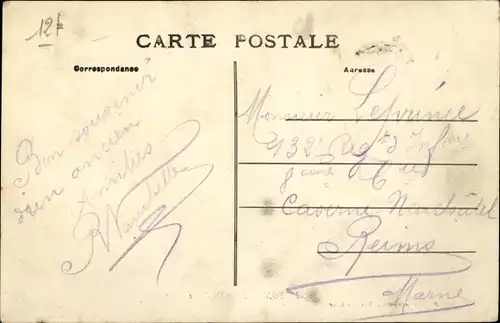 12f
CARTE POSTALE
Correspondance
Adresse
Bon souvenir
d'un ancien
Amitiés
Monsieur Lefrince
132e Regt d'Infrie
Cie
Caserne Neufchatel
Reims
Marne